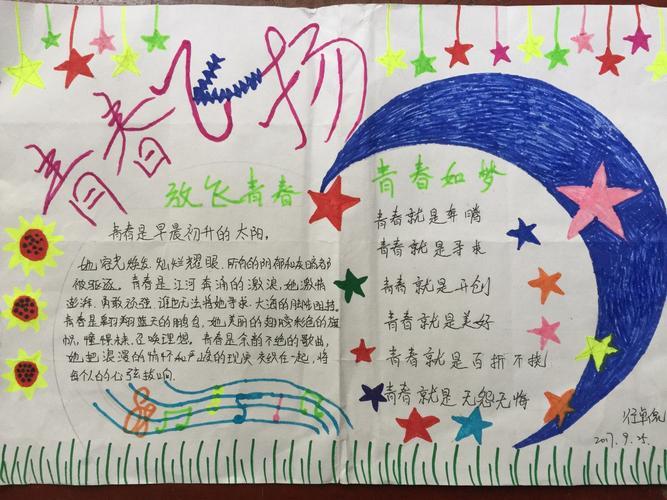 青春飞扬
放飞青春
青春是早晨初升的太阳,
她容光焕发、灿烂耀眼,所有的阴郁和灰暗都
被驱逐。青春是江河奔涌的激浪,她激情
澎湃、勇敢顽强,谁也无法将她寻求大海的脚步阻挡。
青春是翱翔蓝天的鹏鸟,她美丽的翅膀彩色的旗
帜,憧憬、召唤理想。青春是余韵不绝的歌曲,
她把浪漫的情怀和严峻的现实交织在一起,将
每个人的心弦拨响。
青春如梦
青春就是奔腾
青春就是寻求
青春就是开创
青春就是美好
青春就是百折不挠
青春就是无怨无悔
2017.9.25.